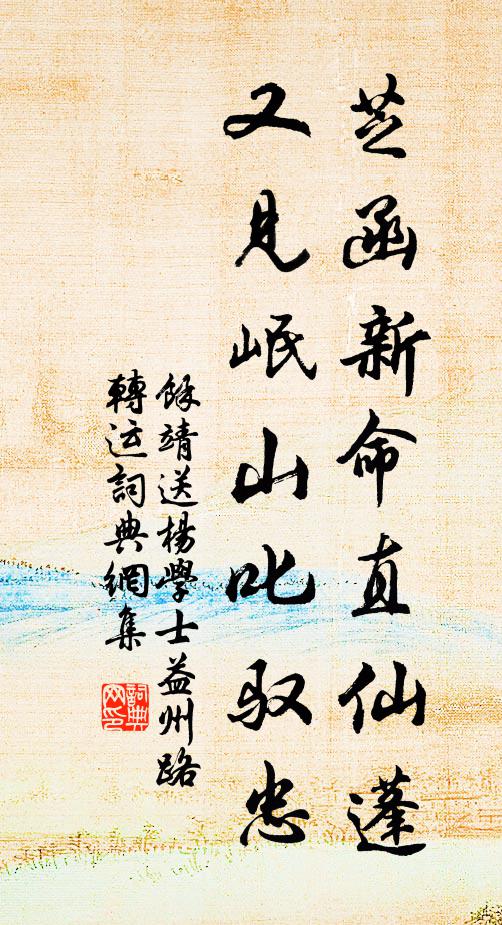 芝函新命直仙蓬
又見岷山叱驭忠
餘靖送楊學士益州路
轉运詞典網集
詞典网印